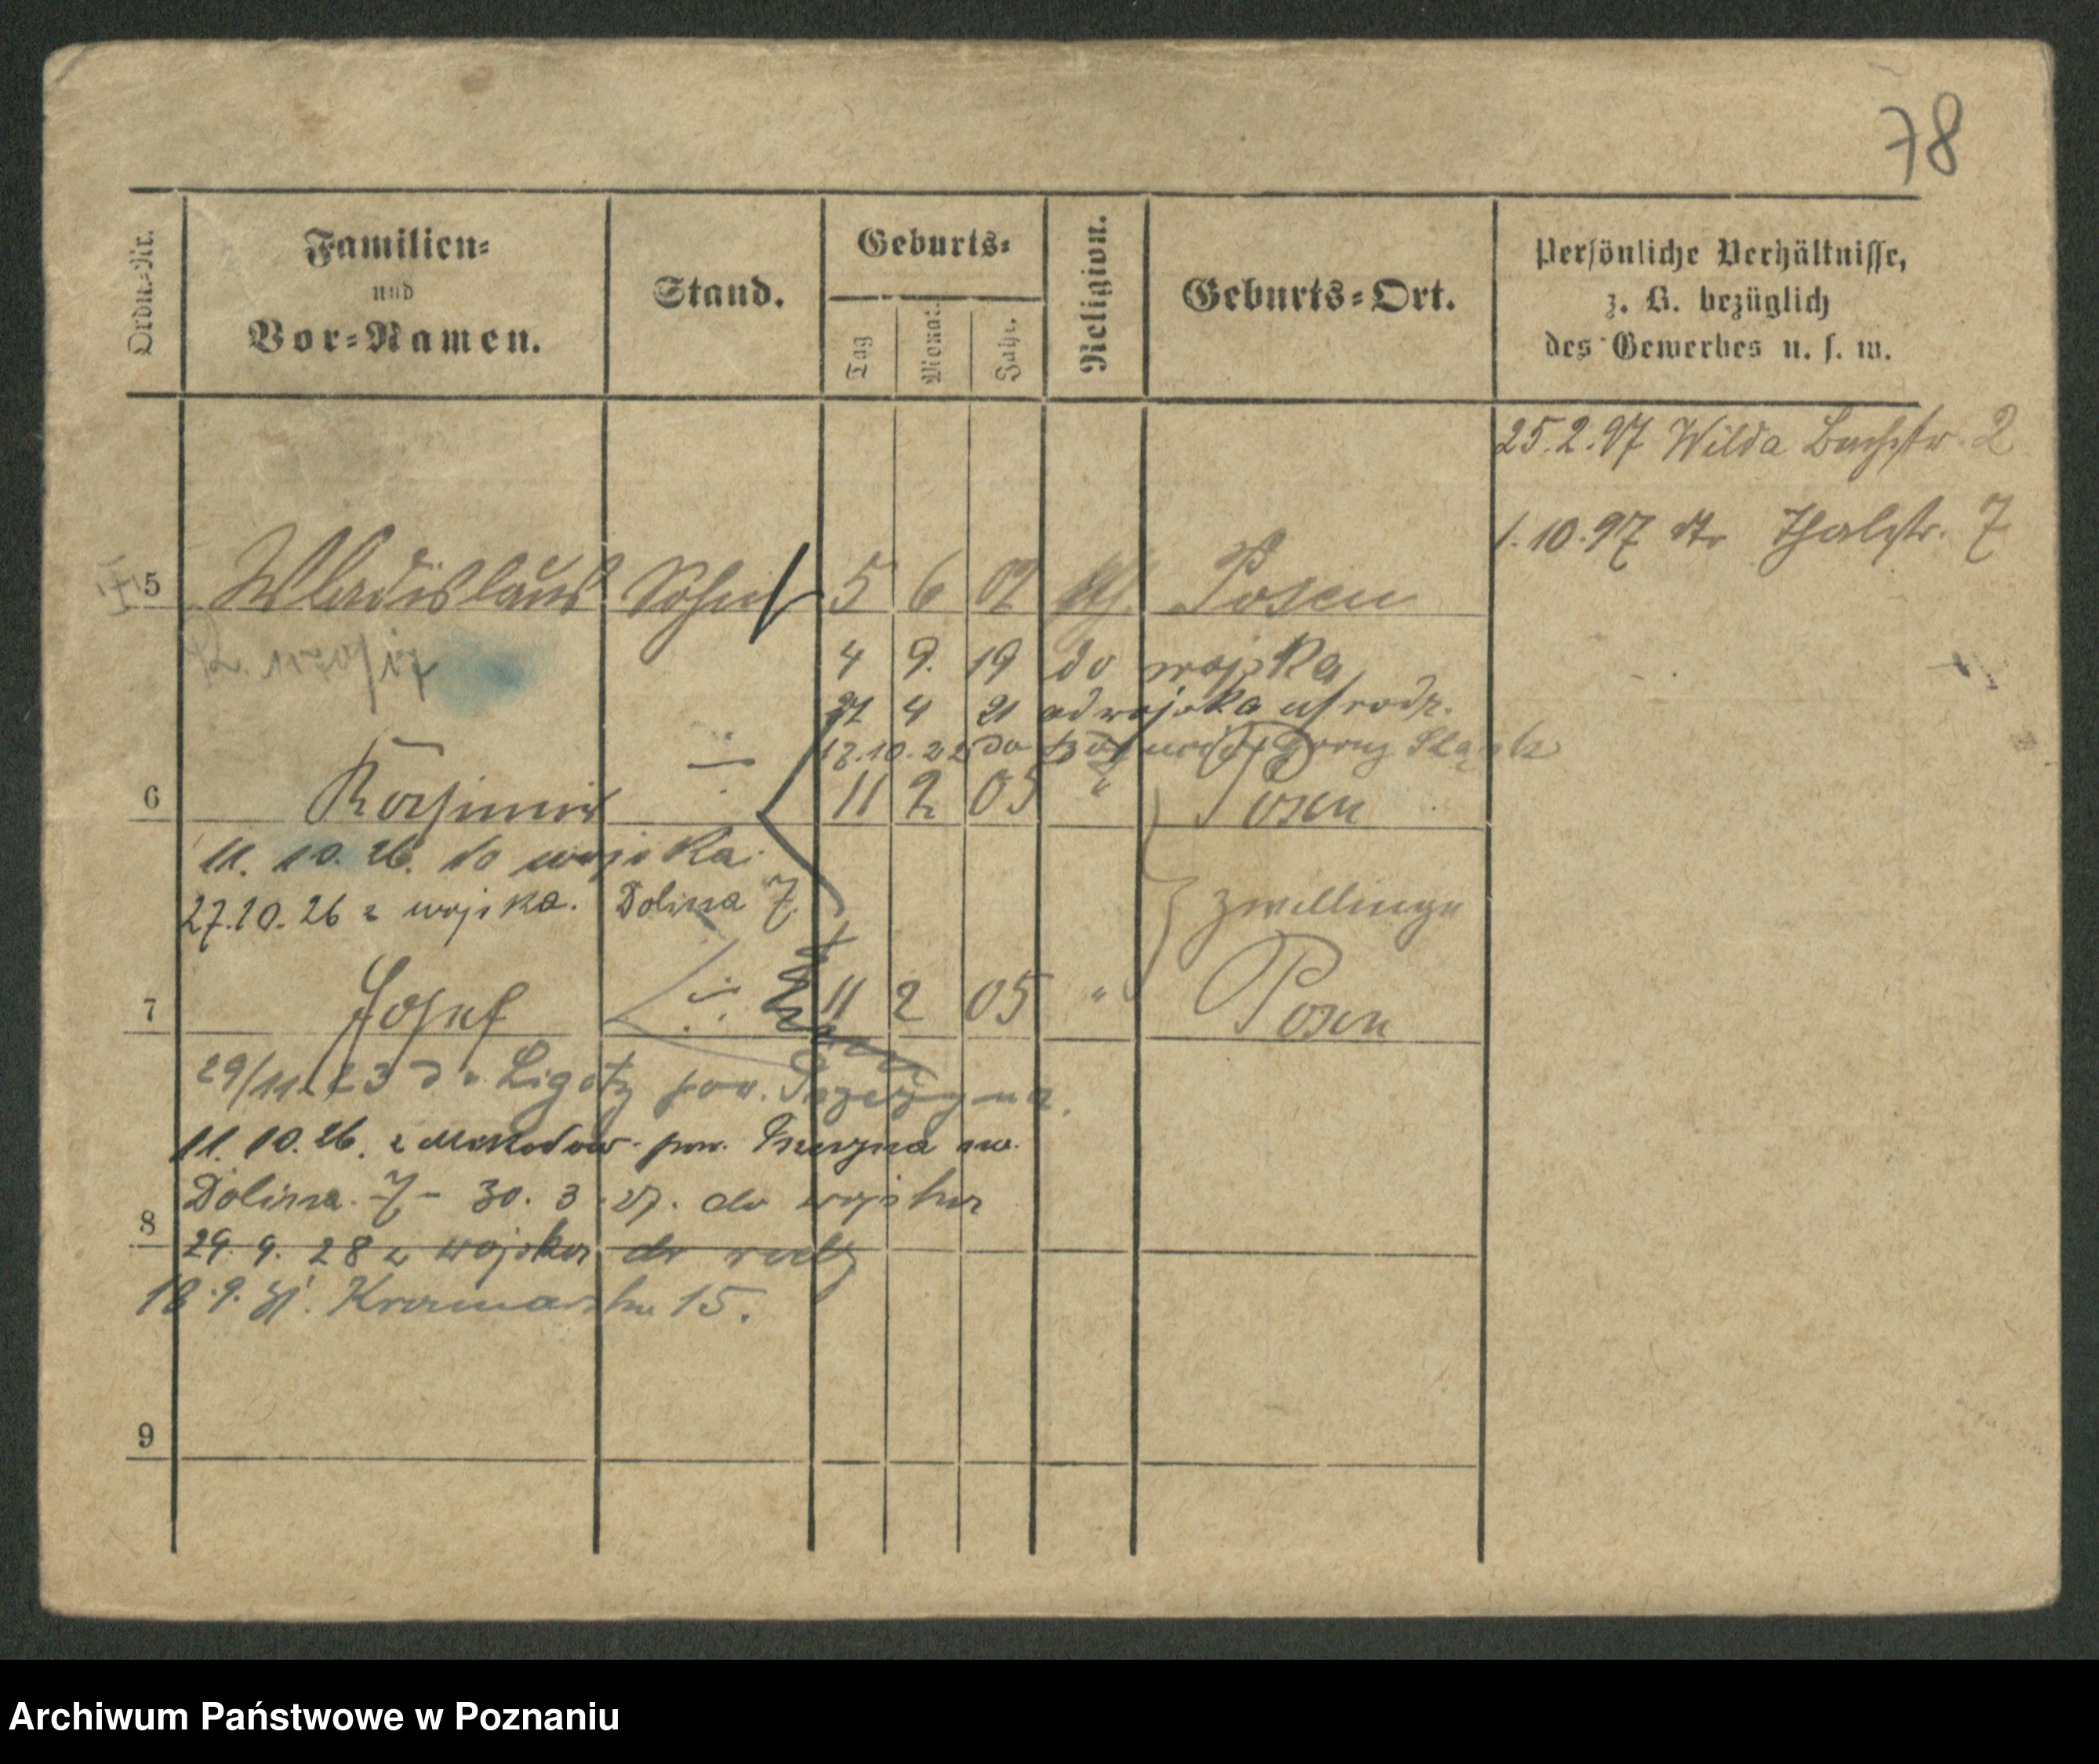 78
Ordn.-Nr.
Familien-
und
Vor-Namen.
Stand.
Geburts-
Tag
Monat.
Jahr.
Religion.
Geburts-Ort.
Persönliche Verhältnisse,
z. B. bezüglich
des Gewerbes u. s. w.
25.2.97 Wilda Bachstr. 2
1.10.97 Thalstr. 7
5 Wladislaus Sohn 5 6 02 kth. Posen
4 9. 19 do wojska
27 4 21 od wojska
17.10.22 do Śląsk
6 Kasimir 11 2 05 " Posen
11. 10. 26. do wojska.
27.10.26 z wojska. Dolina 7
Zwillinge
7 Josef 11 2 05 " Posen
29/11 23 do Ligoty pow. Pszczyna.
11. 10. 26. z pow. Pszczyna
Dolina 7 - 30. 3. 27. do wojska
8
29. 9. 28 z wojska do
18.9.31. 15.
9
Archiwum Państwowe w Poznaniu